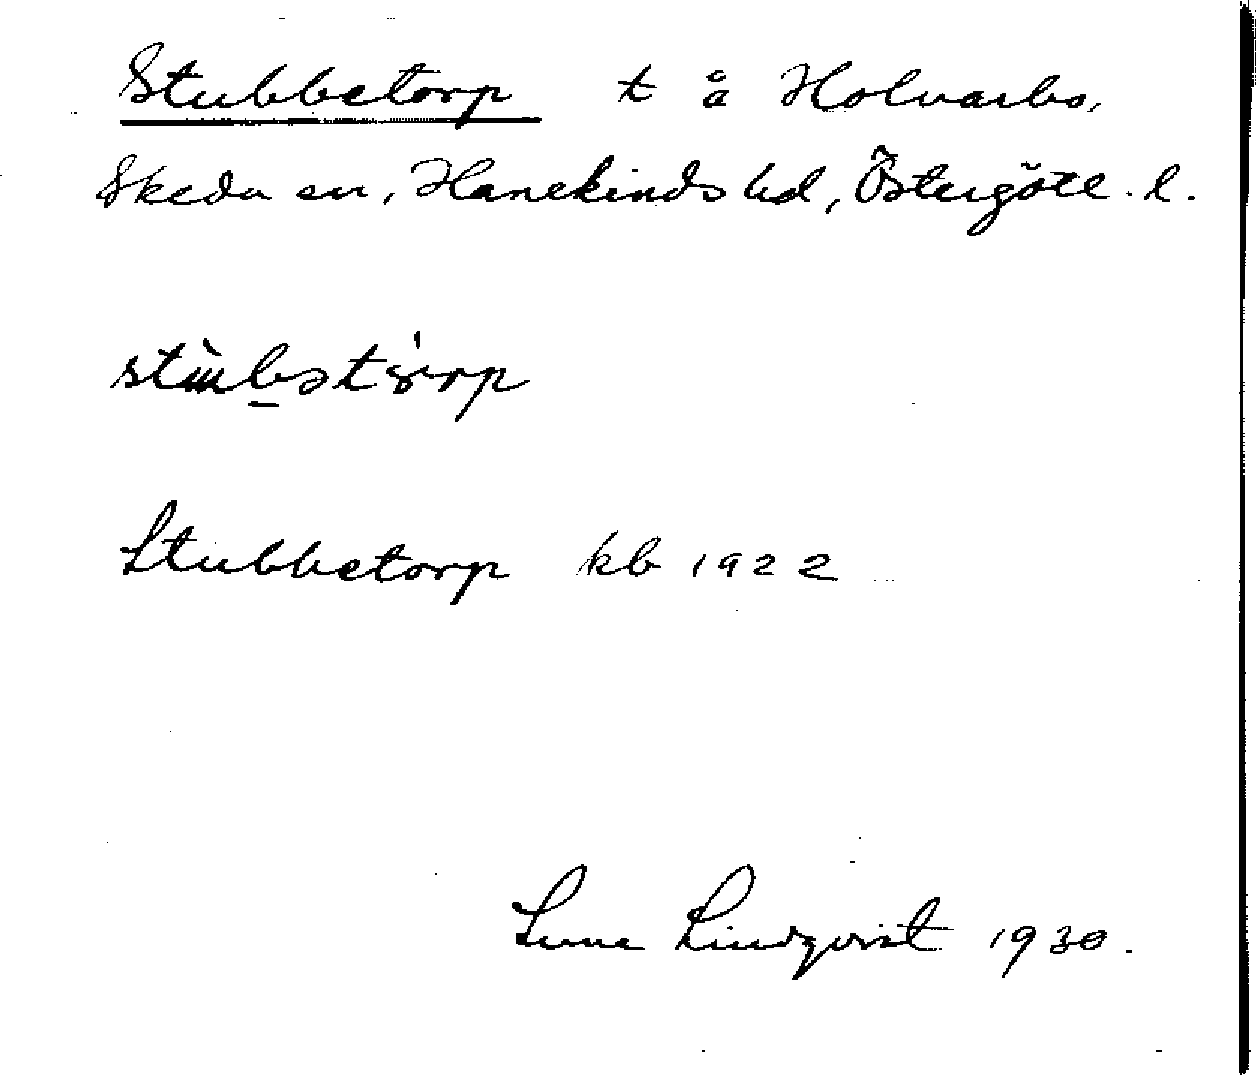 Stubbetorp t å Holvarbo,
Skeda sn, Hanekinds hd, Östergötl. l.
Stubbetorp kb 1922
Sune Lindqvist 1930.